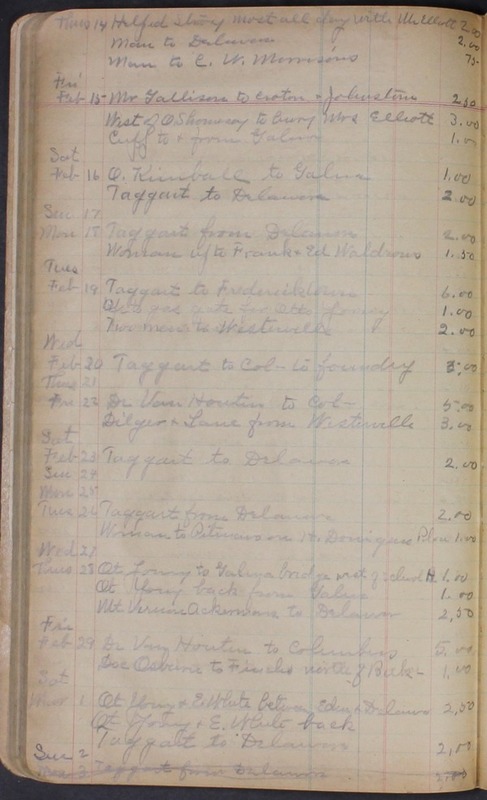 Thurs 14 Helped Story most all day with McNutt 2.00
Man to Delaware 2.00
Man to E. W. Morrisons 75-
Fri
Feb 15- Mr Gallison to Croton & Johnstown 2.50
West of O Shoney to bury Mrs Elliott 3.00
Cuff to & from Galena 1.00
Sat
Feb 16 O. Kimball to Galena 1.00
Taggart to Delaware 2.00
Sun 17
Mon 18 Taggart from Delaware 2.00
Woman up to Frank & Ed Waldrows 1.50
Tues
Feb 19 Taggart to Fredericktown 6.00
1.00
Two men to Westerville 2.00
Wed
Feb 20 Taggart to Col- to foundry 5.00
Thurs 21
Fri 22 Dr Van Houten to Col- 5.00
Dilger & Lane from Westerville 3.00
Sat
Feb 23 Taggart to Delaware 2.00
Sun 24
Mon 25
Tues 26 Taggart from Delaware 2.00
Woman to Peterson H. Domigans Place 1.00
Wed 27
Thurs 28 Ot to Galena bridge west of school H. 1.00
Ot back from Galena 1.00
Mt Vernon Ackerman to Delaware 2.50
Fri
Feb 29 Dr Van Houten to Columbus 5.00
Doc Osborne to Finches north of 1.00
Sat
Mar 1 Ot & E. White between Eden & Delaware 2.50
Ot & E. White back
Taggart to Delaware 2.00
Sun 2
Mon 3 Taggart from Delaware 2.00